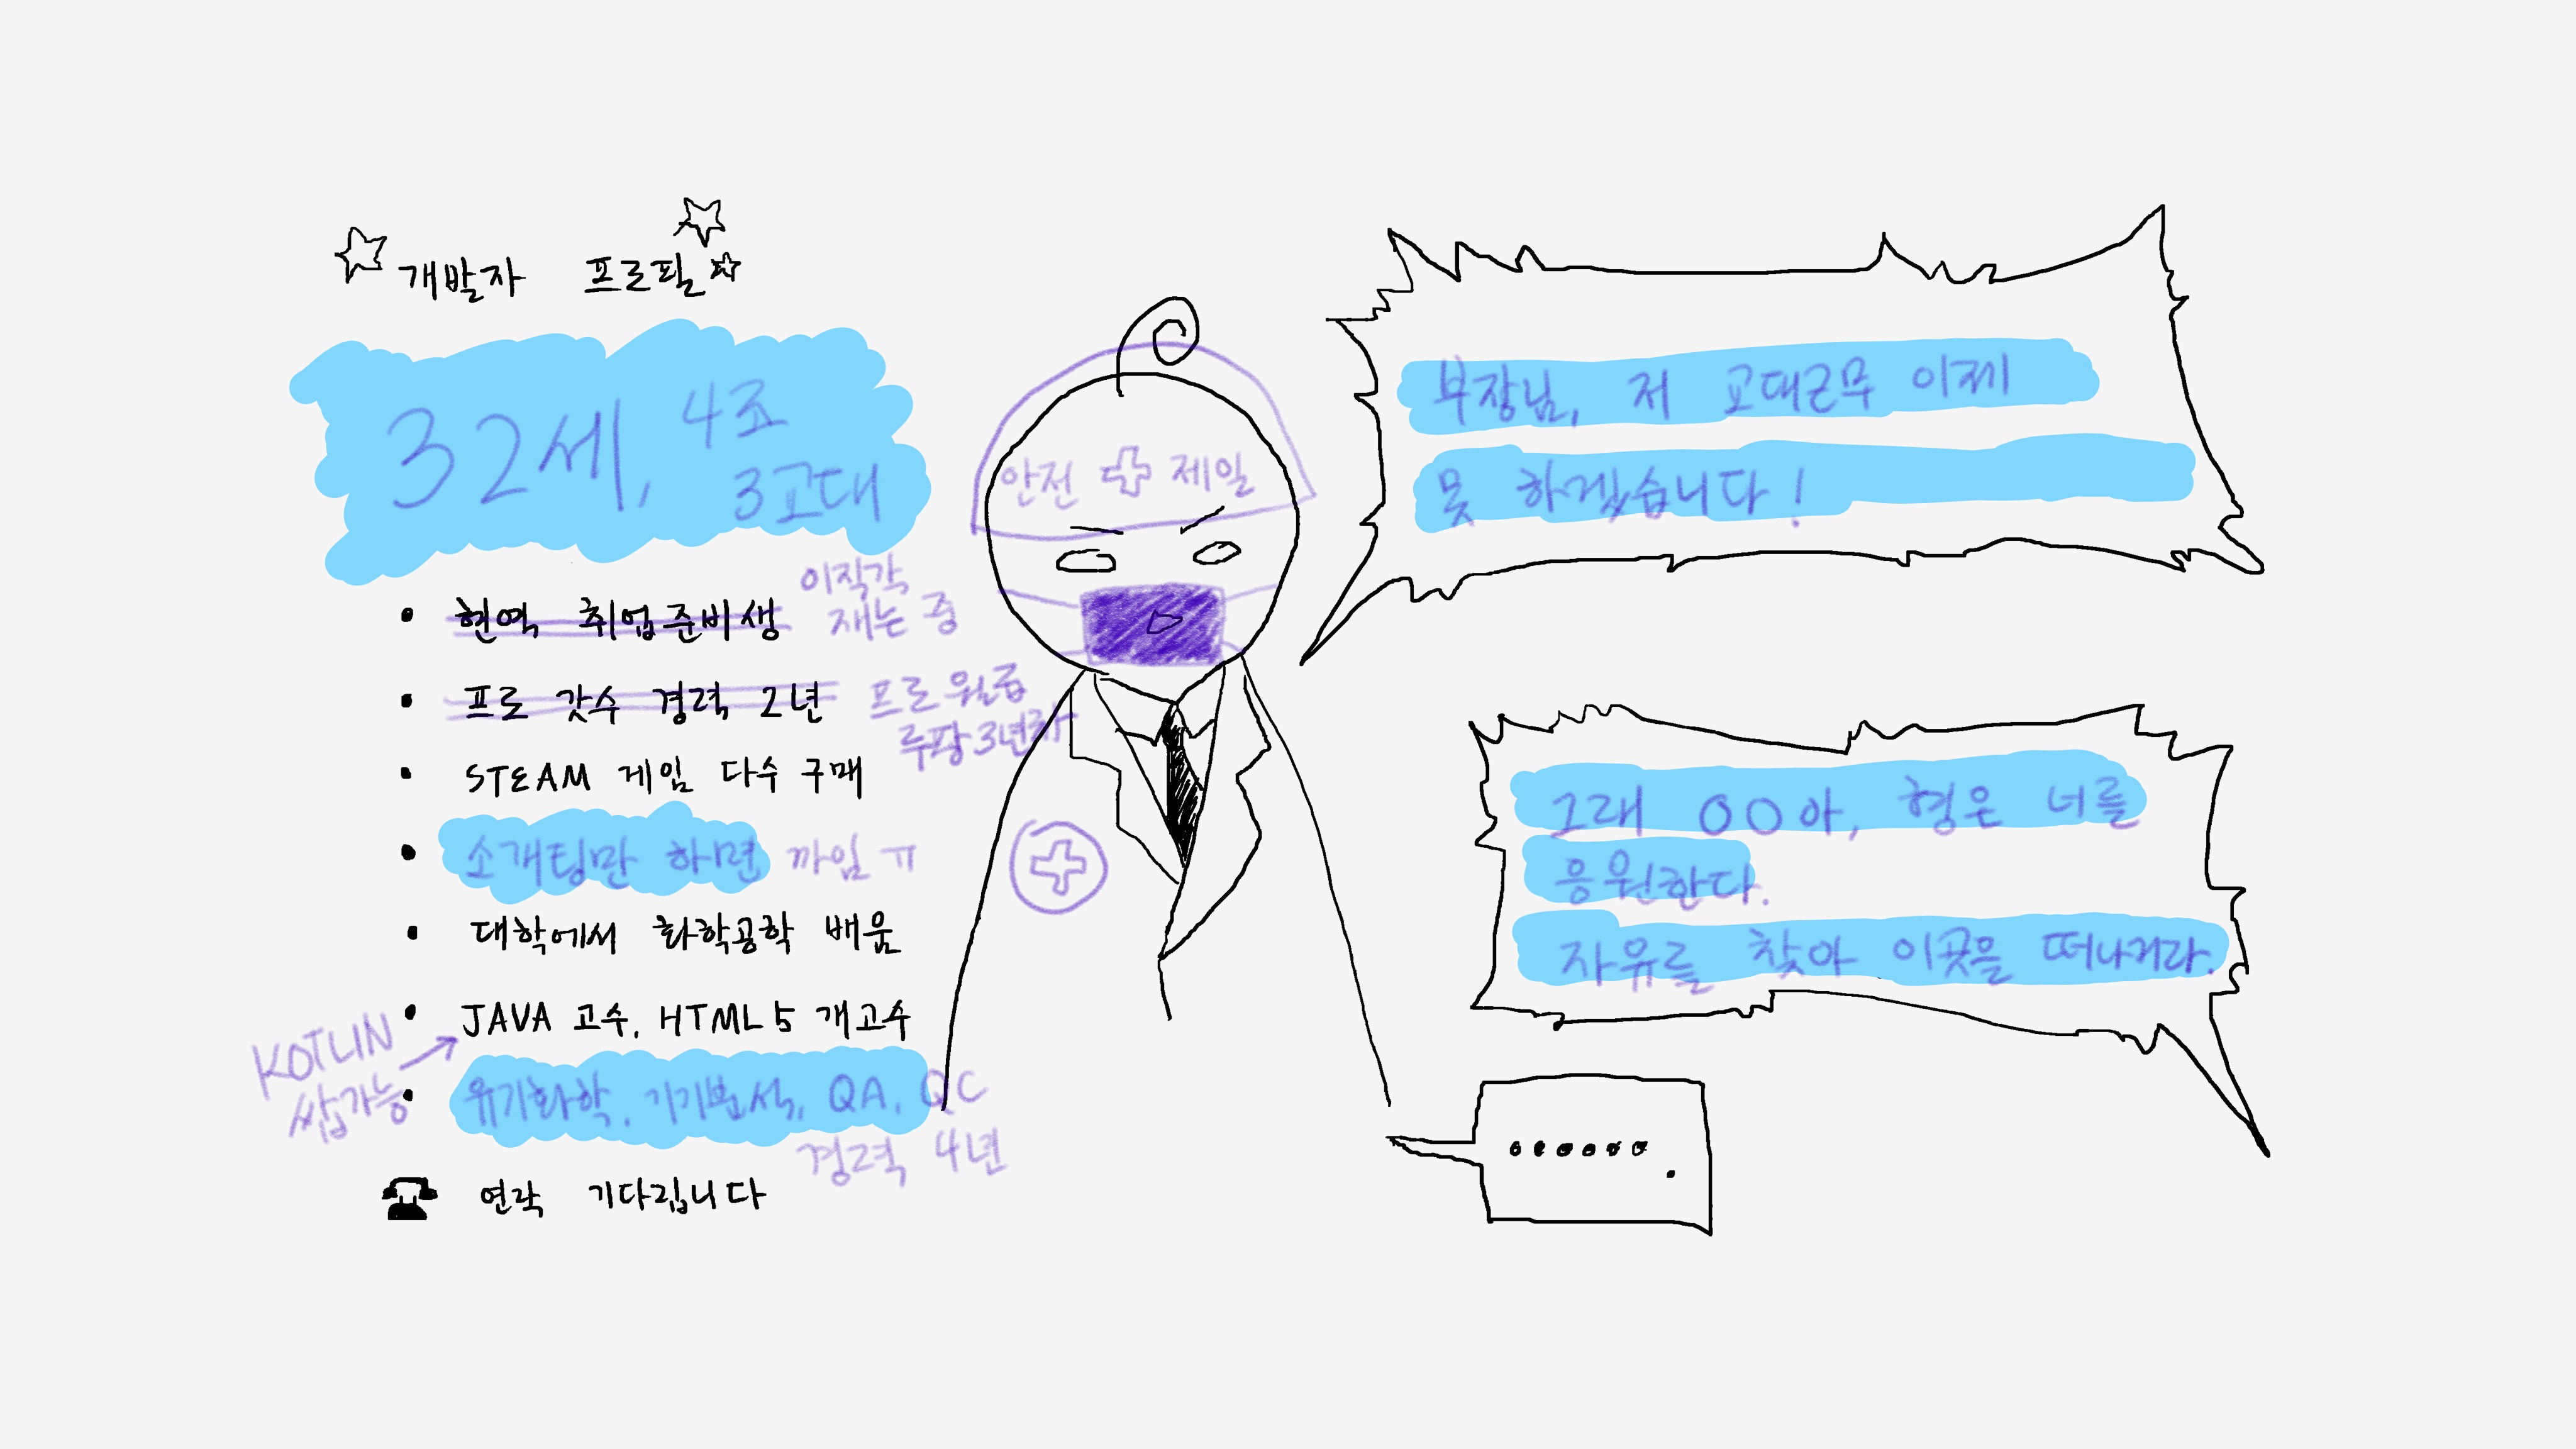 개발자 프로필
32세, 4조
3교대
현역 취업준비생 이직각
재는 중
프로 갓수 경력 2년 프로 월급
루팡 3년차
STEAM 게임 다수 구매
소개팅만 하면 까임 ㅠ
대학에서 화학공학 배움
JAVA 고수, HTML5 개고수
KOTLIN
쌉가능
유기화학, 기기분석, QA, QC
경력 4년
연락 기다립니다
안전 제일
부장님, 저 교대근무 이제
못 하겠습니다!
그래 OO아, 형은 너를
응원한다.
자유를 찾아 이곳을 떠나거라.
.......